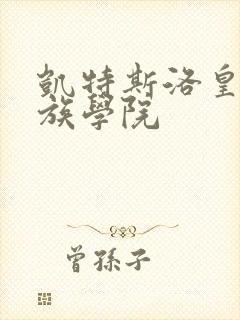 凱特斯洛皇
族學院
曾孫子